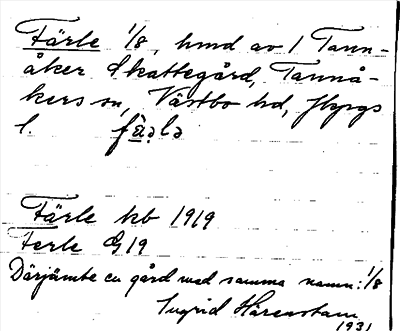 Färle 1/8, hmd av 1 Tann-
åker Skattegård, Tannå-
kers sn, Västbo hd, Jkpgs
l.
Färle kb 1919
Ferle GJ 19
Därjämte en gård med samma namn: 1/8
Ingrid Härenstam
1931